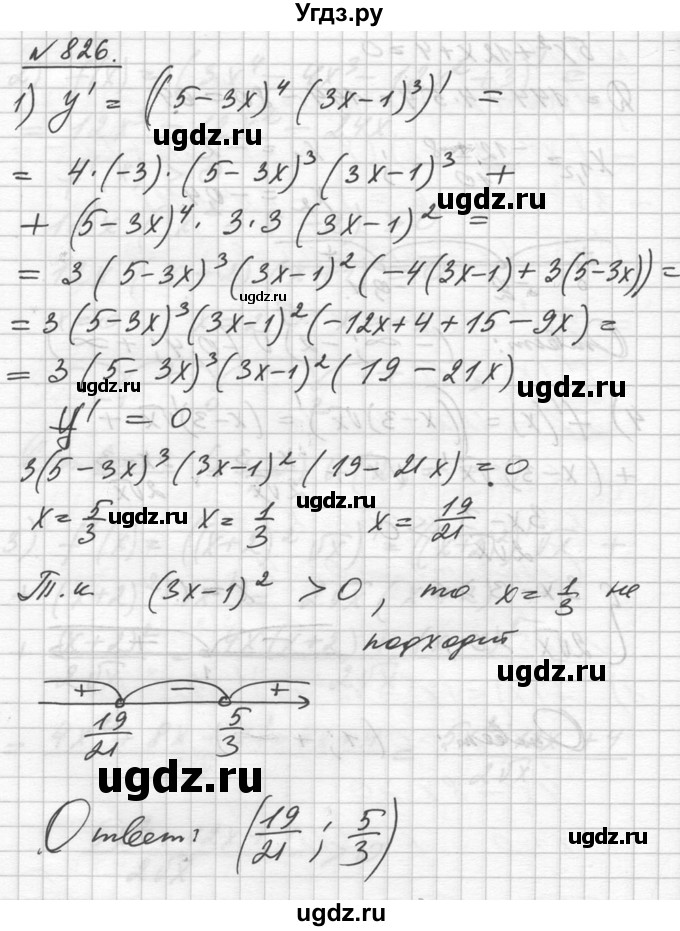 Угдз.ру
№ 826.
1) y' = ((5-3x)⁴ (3x-1)³)' =
ugdz.ru
= 4·(-3)·(5-3x)³ (3x-1)³ +
ugdz.ru
+ (5-3x)⁴· 3·3 (3x-1)² =
= 3 (5-3x)³ (3x-1)² (-4(3x-1)+3(5-3x)) =
ugdz.ru
= 3 (5-3x)³ (3x-1)² (-12x+4+15-9x) =
= 3 (5-3x)³ (3x-1)² (19-21x)
ugdz.ru
ugdz.ru
y' = 0
3(5-3x)³ (3x-1)² (19-21x) = 0
x = 5/3 x = 1/3 x = 19/21
ugdz.ru
ugdz.ru
Т.к (3x-1)² > 0, то x = 1/3 не
подходит
ugdz.ru
+ - +
19/21 5/3
ugdz.ru
Ответ: (19/21 ; 5/3)
ugdz.ru
ugdz.ru